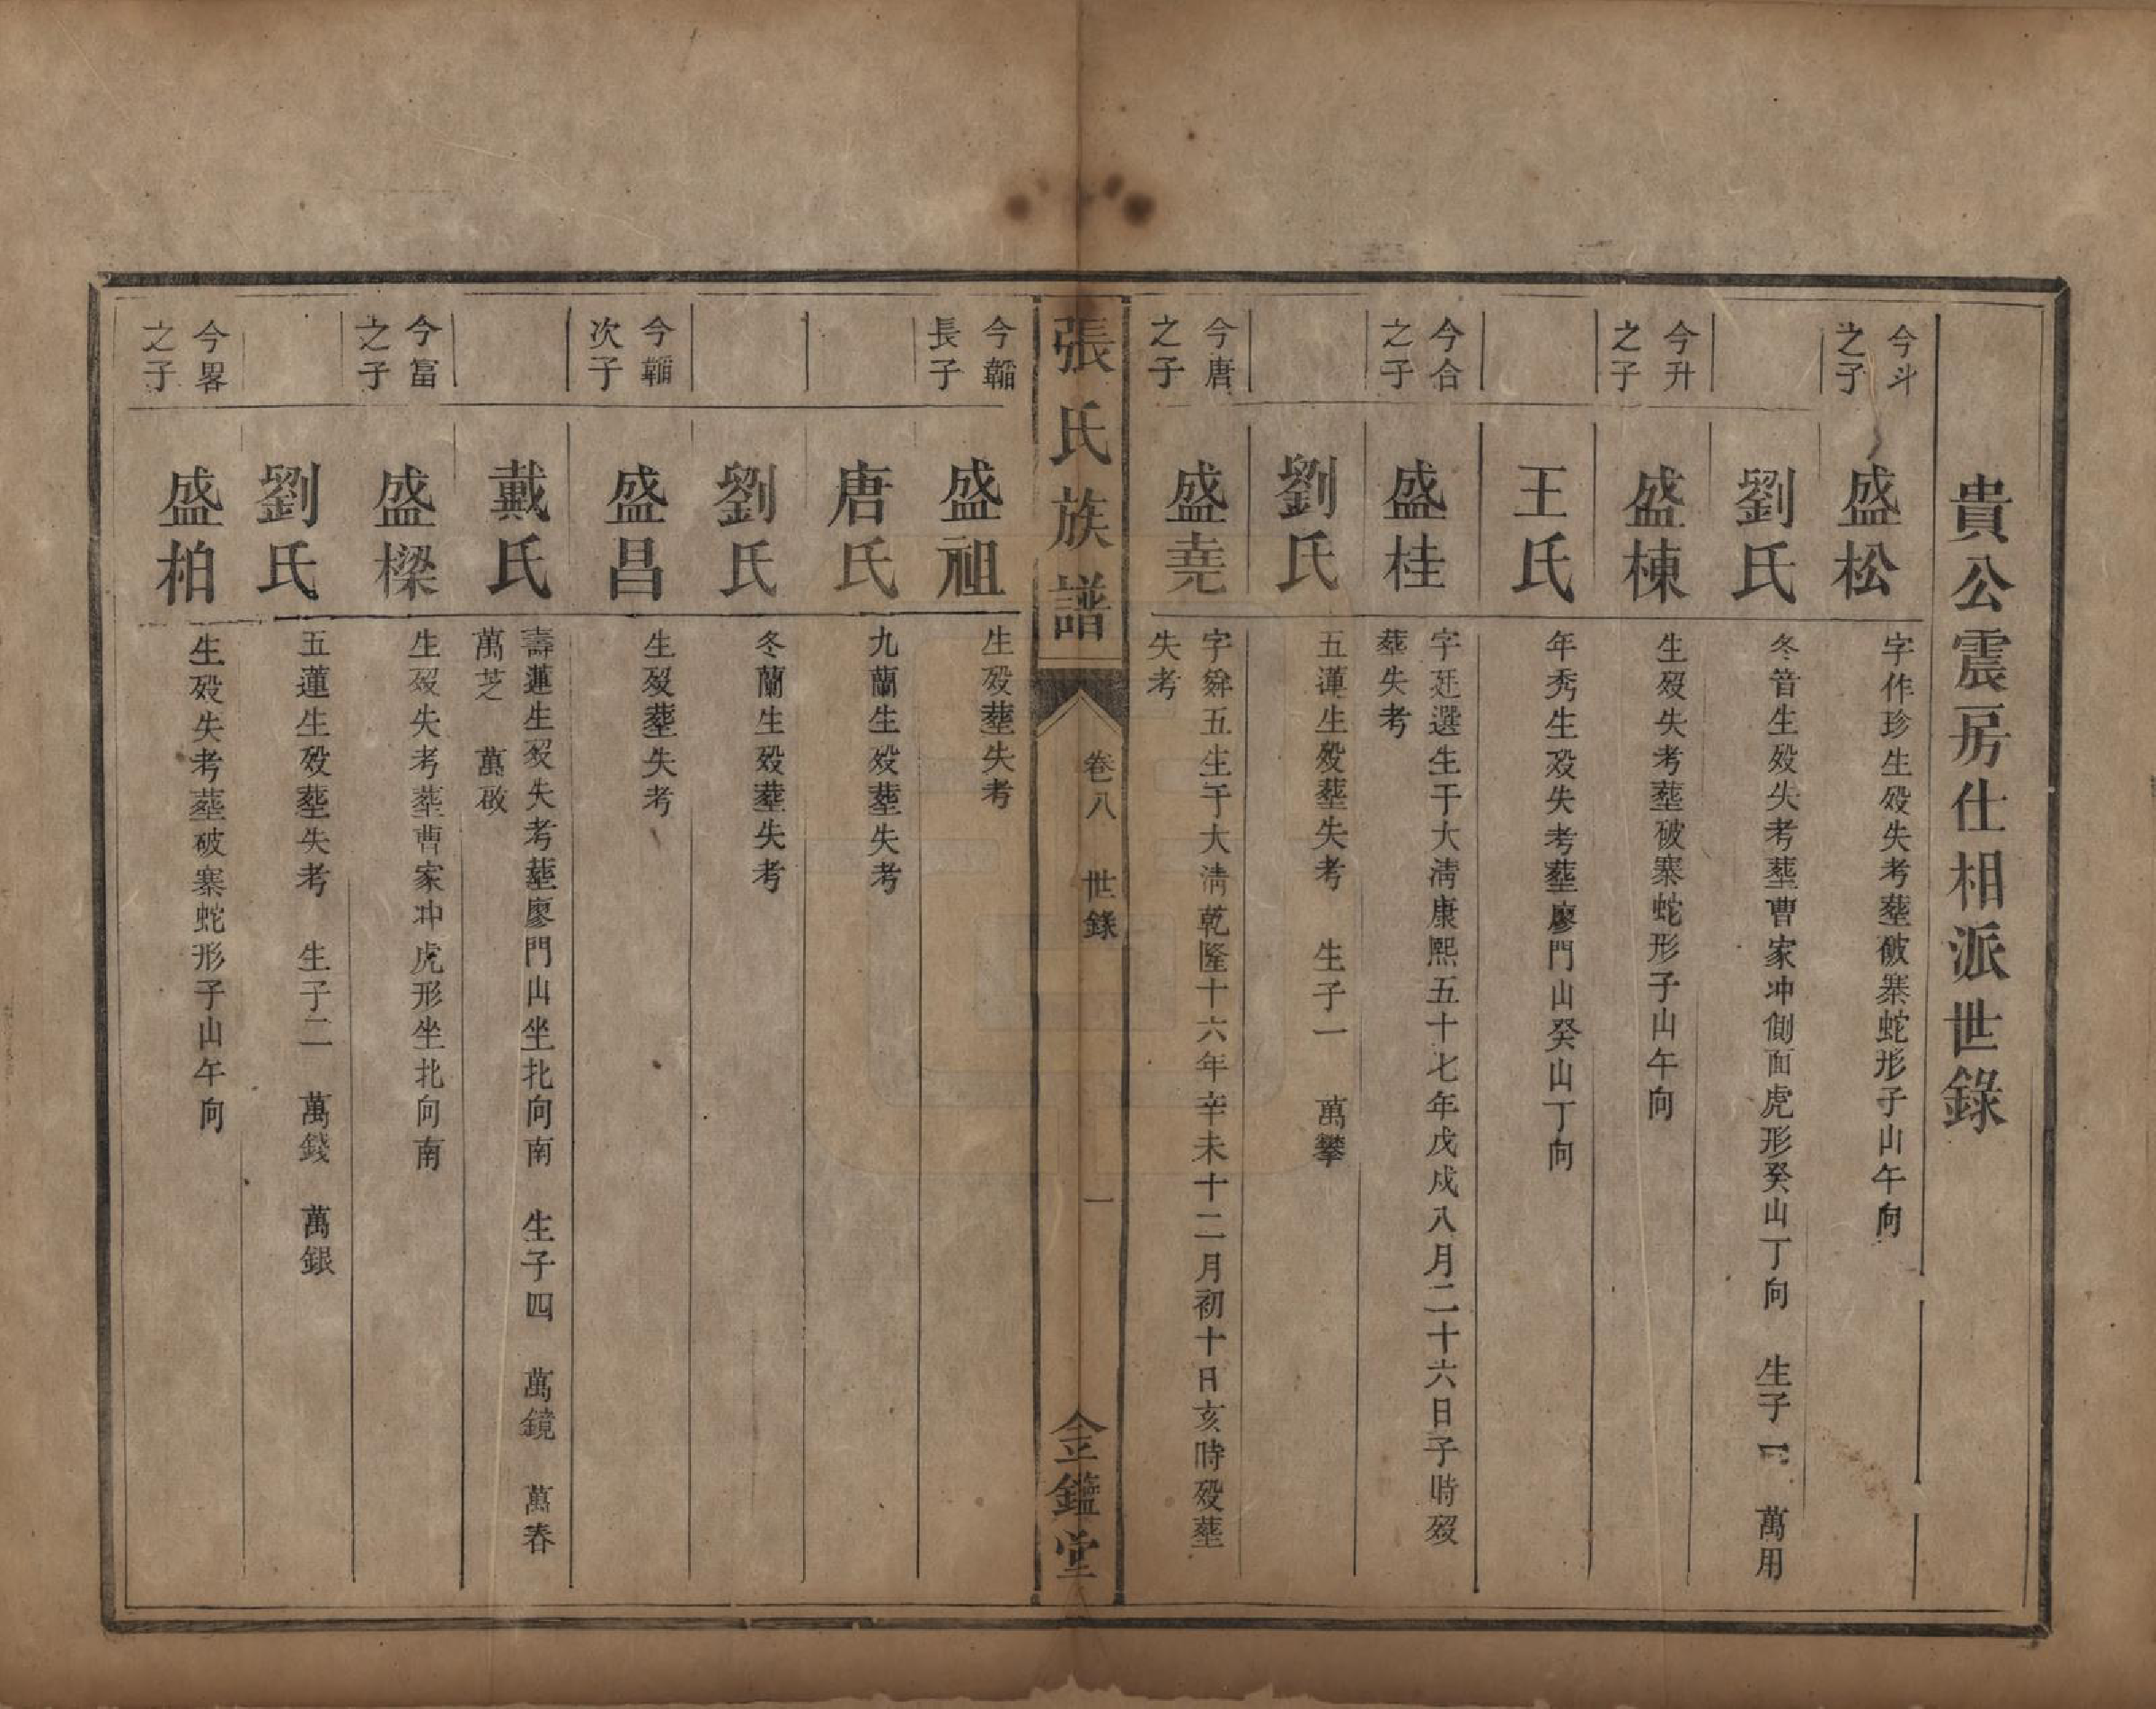 貴公震房仕相派世錄
今斗之子
盛松
字作珍生殁失考塟破寨蛇形子山午向
劉氏
冬音生殁失考塟曹家冲側面虎形癸山丁向 生子一 萬用
今升之子
盛棟
生殁失考塟破寨蛇形子山午向
王氏
年秀生殁失考塟廖門山癸山丁向
今合之子
盛桂
字廷選生于大清康熙五十七年戊戌八月二十六日子時殁
塟失考
劉氏
五蓮生殁塟失考 生子一 萬攀
今唐之子
盛堯
字舜五生于大清乾隆十六年辛未十二月初十日亥時殁塟
失考
張氏族譜
卷八 世錄
一
金鑑堂
今韜長子
盛祖
生殁塟失考
唐氏
九蘭生殁塟失考
劉氏
冬蘭生殁塟失考
今韜次子
盛昌
生殁塟失考
戴氏
壽蓮生殁失考塟廖門山坐北向南 生子四 萬鏡 萬春
萬芝 萬敬
今富之子
盛樑
生殁失考塟曹家冲虎形坐北向南
劉氏
五蓮生殁塟失考 生子二 萬錢 萬銀
今畧之子
盛柏
生殁失考塟破寨蛇形子山午向